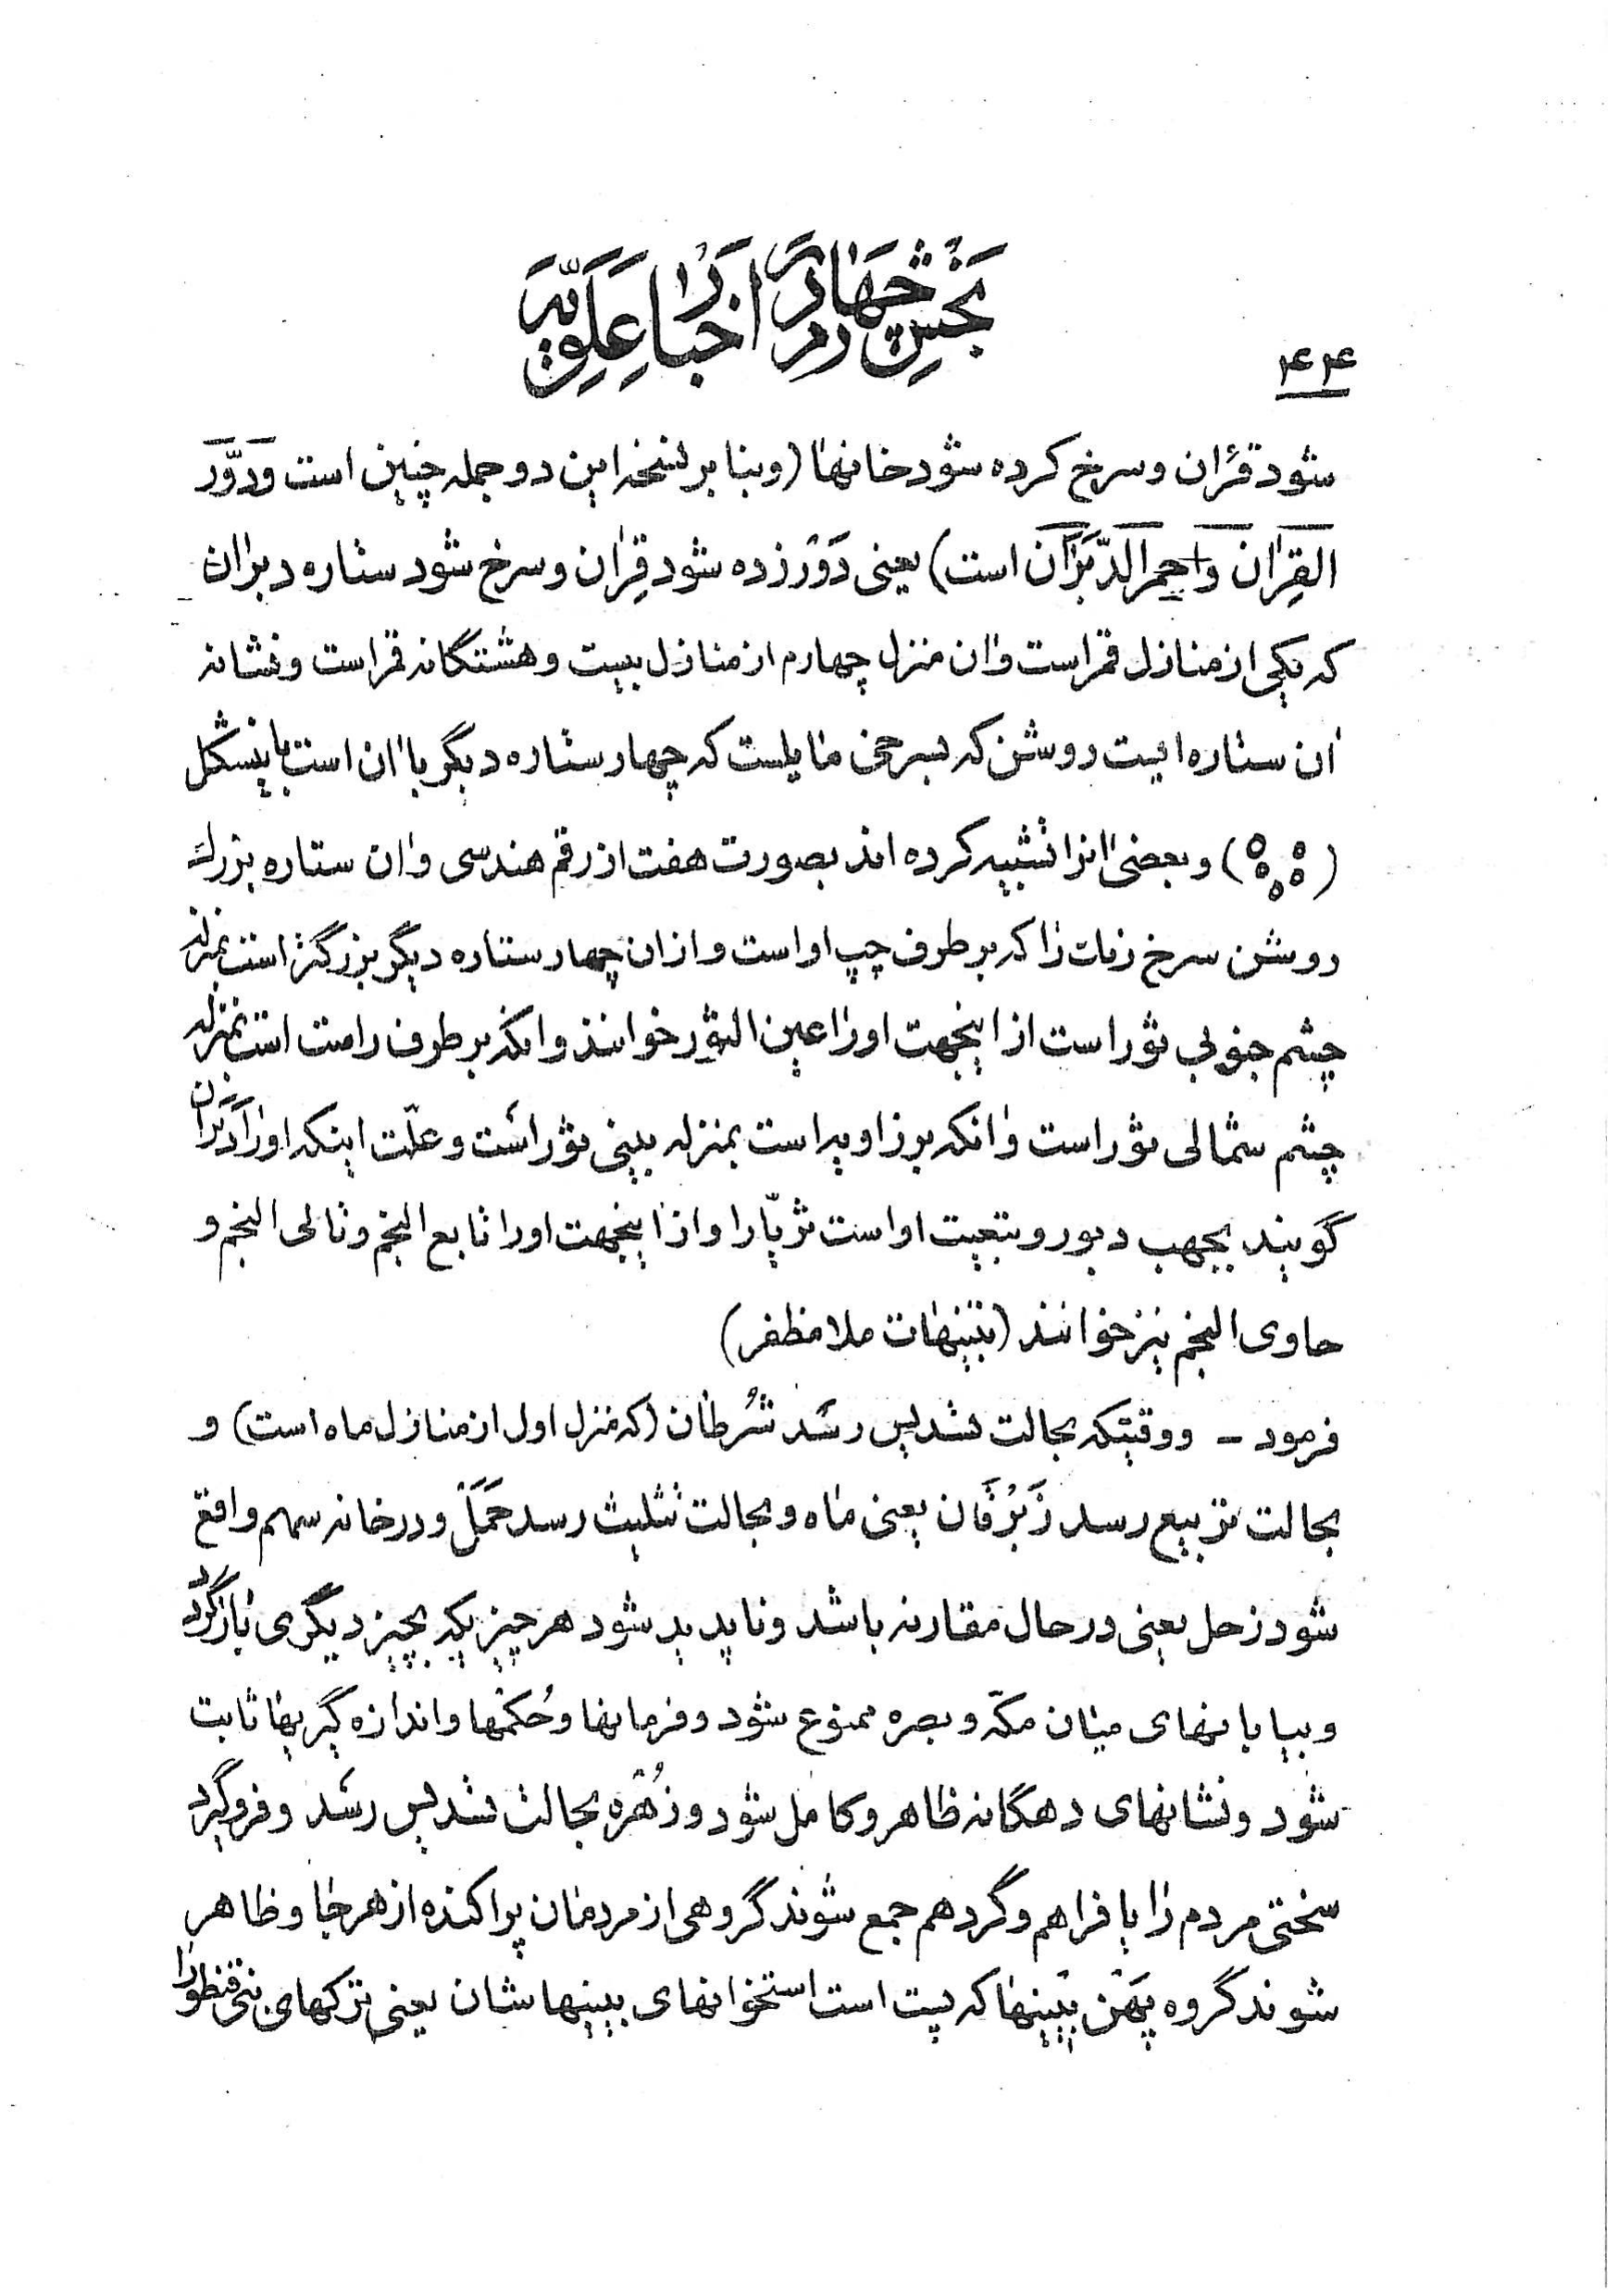 بخش چهارم در اخبار علویّه
۴۴
شود قرٰان و سرخ کرده شود خانهٰا (و بنا بر نسخه این دو جمله چنین است وَدَوَّرَ
القِرٰان وَاحمرالدّبَرٰان است) یعنی دَوْر زده شود قِرٰان و سرخ شود ستاره دبرٰان
که یکی از منازل قمر است و اٰن منزل چهارم از منازل بیست و هشتگانه قمر است و نشانه
اٰن ستاره ایست روشن که بسرخی مٰایلست که چهار ستاره دیگر با اٰن است باینشکل
( ) و بعضی اٰنرا تشبیه کرده اند بصورت هفت از رقم هندسی و اٰن ستاره بزرک
روشن سرخ رنک رٰا که بر طرف چپ او است و از اٰن چهار ستاره دیگر بزرگتر است بمنزله
چشم جنوبی ثور است از اینجهت اورٰا عین الثور خوانند و انکه بر طرف راست است بمنزله
چشم شمٰالی ثور است و اٰنکه بر زاویه است بمنزله بینی ثور است و علّت اینکه اورٰا دَبَرٰان
گویند بجهت دبور و تبعیت او است ثریّا را و از اینجهت اورا تابع النجم و تالی النجم و
حاوی النجم نیز خوانند (تنبیهٰات ملا مظفر)
فرمود - و وقتیکه بحالت تسدیس رسَد شَرُطٰان (که منزل اول از منازل ماه است) و
بحالت تربیع رسد زَبَرْقٰان یعنی مٰاه و بحالت تثلیث رسد حَمَل و در خانه سهم واقع
شود زحل یعنی در حال مقارنه باشد و ناپدید شود هر چیزیکه بچیز دیگری بازگردد
و بیابانهای میٰان مکّه و بصره ممنوع شود و فرمانها و حُکمها و اندازه گیریهٰا ثابت
شود و نشانهای دهگانه ظاهر و کامل شود و زُهْره بحالت تسدیس رسَد و فرو گیرد
سختی مردم رٰا با فراهم و گرد هم جمع شوند گروهی از مردمٰان پراکنده از هر جٰا و ظاهر
شوند گروه پهَن بینیهٰا که پست است استخوانهای بینیها شان یعنی ترکهای بنی قنطورٰا